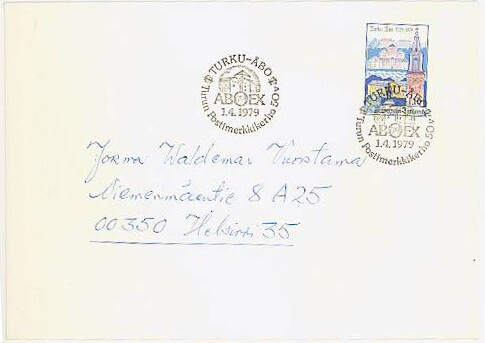 TURKU-ÅBO
ABOEX
1.4.1979
Turun Postimerkkikerho 50 v
TURKU-ÅBO
ABOEX
1.4.1979
Turun Postimerkkikerho 50 v
Jorma Waldemar Vuorstama
Niemenmäentie 8 A 25
00350 Helsinki 35